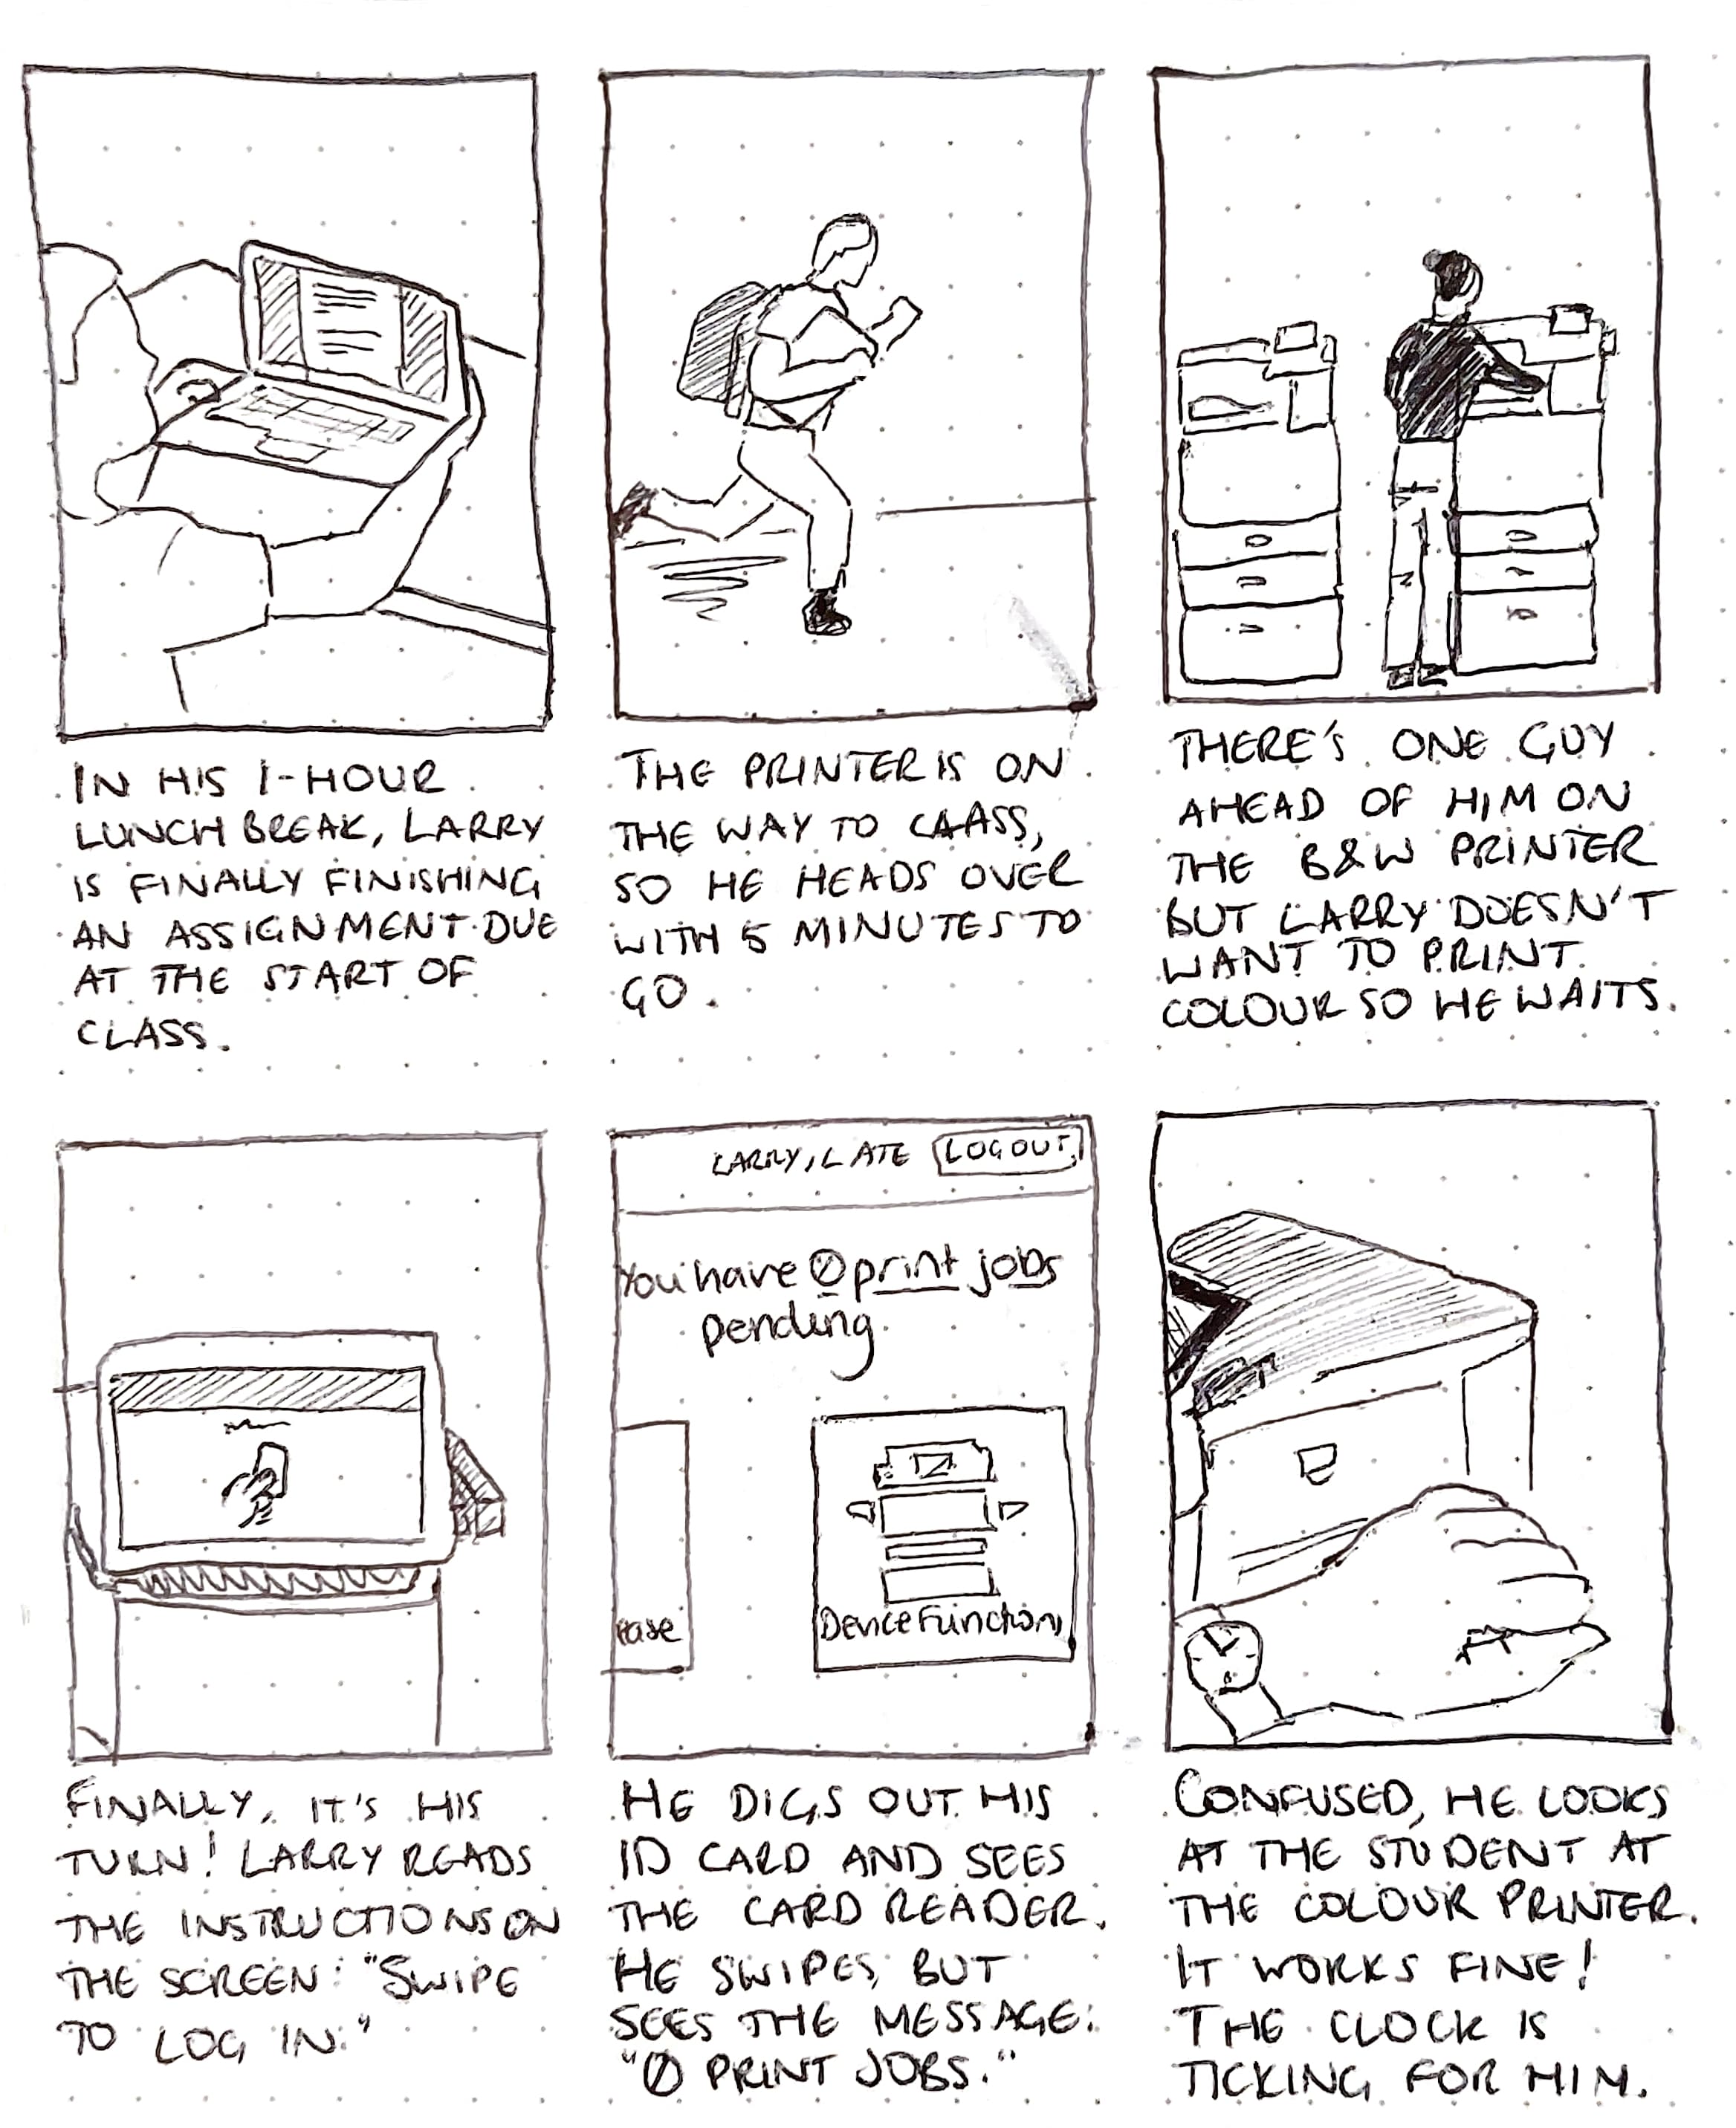 IN HIS 1-HOUR
LUNCH BREAK, LARRY
IS FINALLY FINISHING
AN ASSIGNMENT DUE
AT THE START OF
CLASS.
THE PRINTER IS ON
THE WAY TO CLASS,
SO HE HEADS OVER
WITH 5 MINUTES TO
GO.
THERE'S ONE GUY
AHEAD OF HIM ON
THE B&W PRINTER
BUT LARRY DOESN'T
WANT TO PRINT
COLOUR SO HE WAITS.
FINALLY, IT'S HIS
TURN! LARRY READS
THE INSTRUCTIONS ON
THE SCREEN: "SWIPE
TO LOG IN."
LARRY, LATE LOGOUT
You have 0 print jobs
pending
ease
Device Functions
HE DIGS OUT HIS
ID CARD AND SEES
THE CARD READER.
HE SWIPES, BUT
SEES THE MESSAGE:
"0 PRINT JOBS."
CONFUSED, HE LOOKS
AT THE STUDENT AT
THE COLOUR PRINTER.
IT WORKS FINE!
THE CLOCK IS
TICKING FOR HIM.